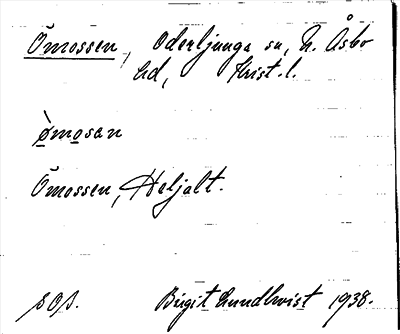 Ömossen, Oderljunga sn, N. Åsbo
hd, Krist. l.
òmosan
Ömossen, Heljalt.
s 0/1.
Birgit Lundkvist 1938.